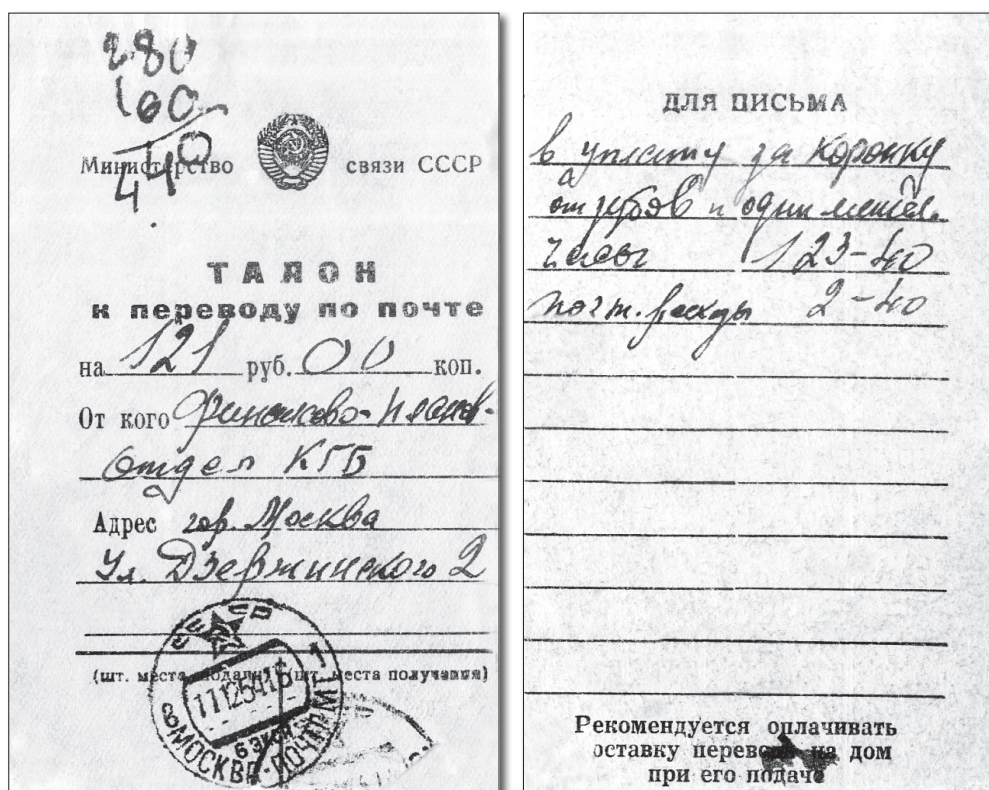 280
160
Министерство связи СССР
ТАЛОН
к переводу по почте
на 121 руб. 00 коп.
От кого Финансово-планов-
Отдел КГБ
Адрес гор. Москва
Ул. Дзержинского 2
СССР
(шт. места подачи) (шт. места получения)
МОСКВА-ПОЧТАМТ
ДЛЯ ПИСЬМА
в уплату за коронку
от зубов и одни
часы 123-40
почт. расходы 2-40
Рекомендуется оплачивать
оставку перевода на дом
при его подаче